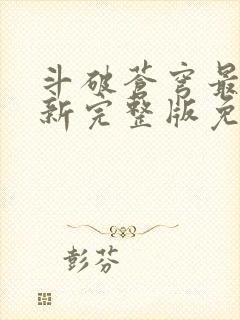 斗破苍穹最
新完整版免
彭芬